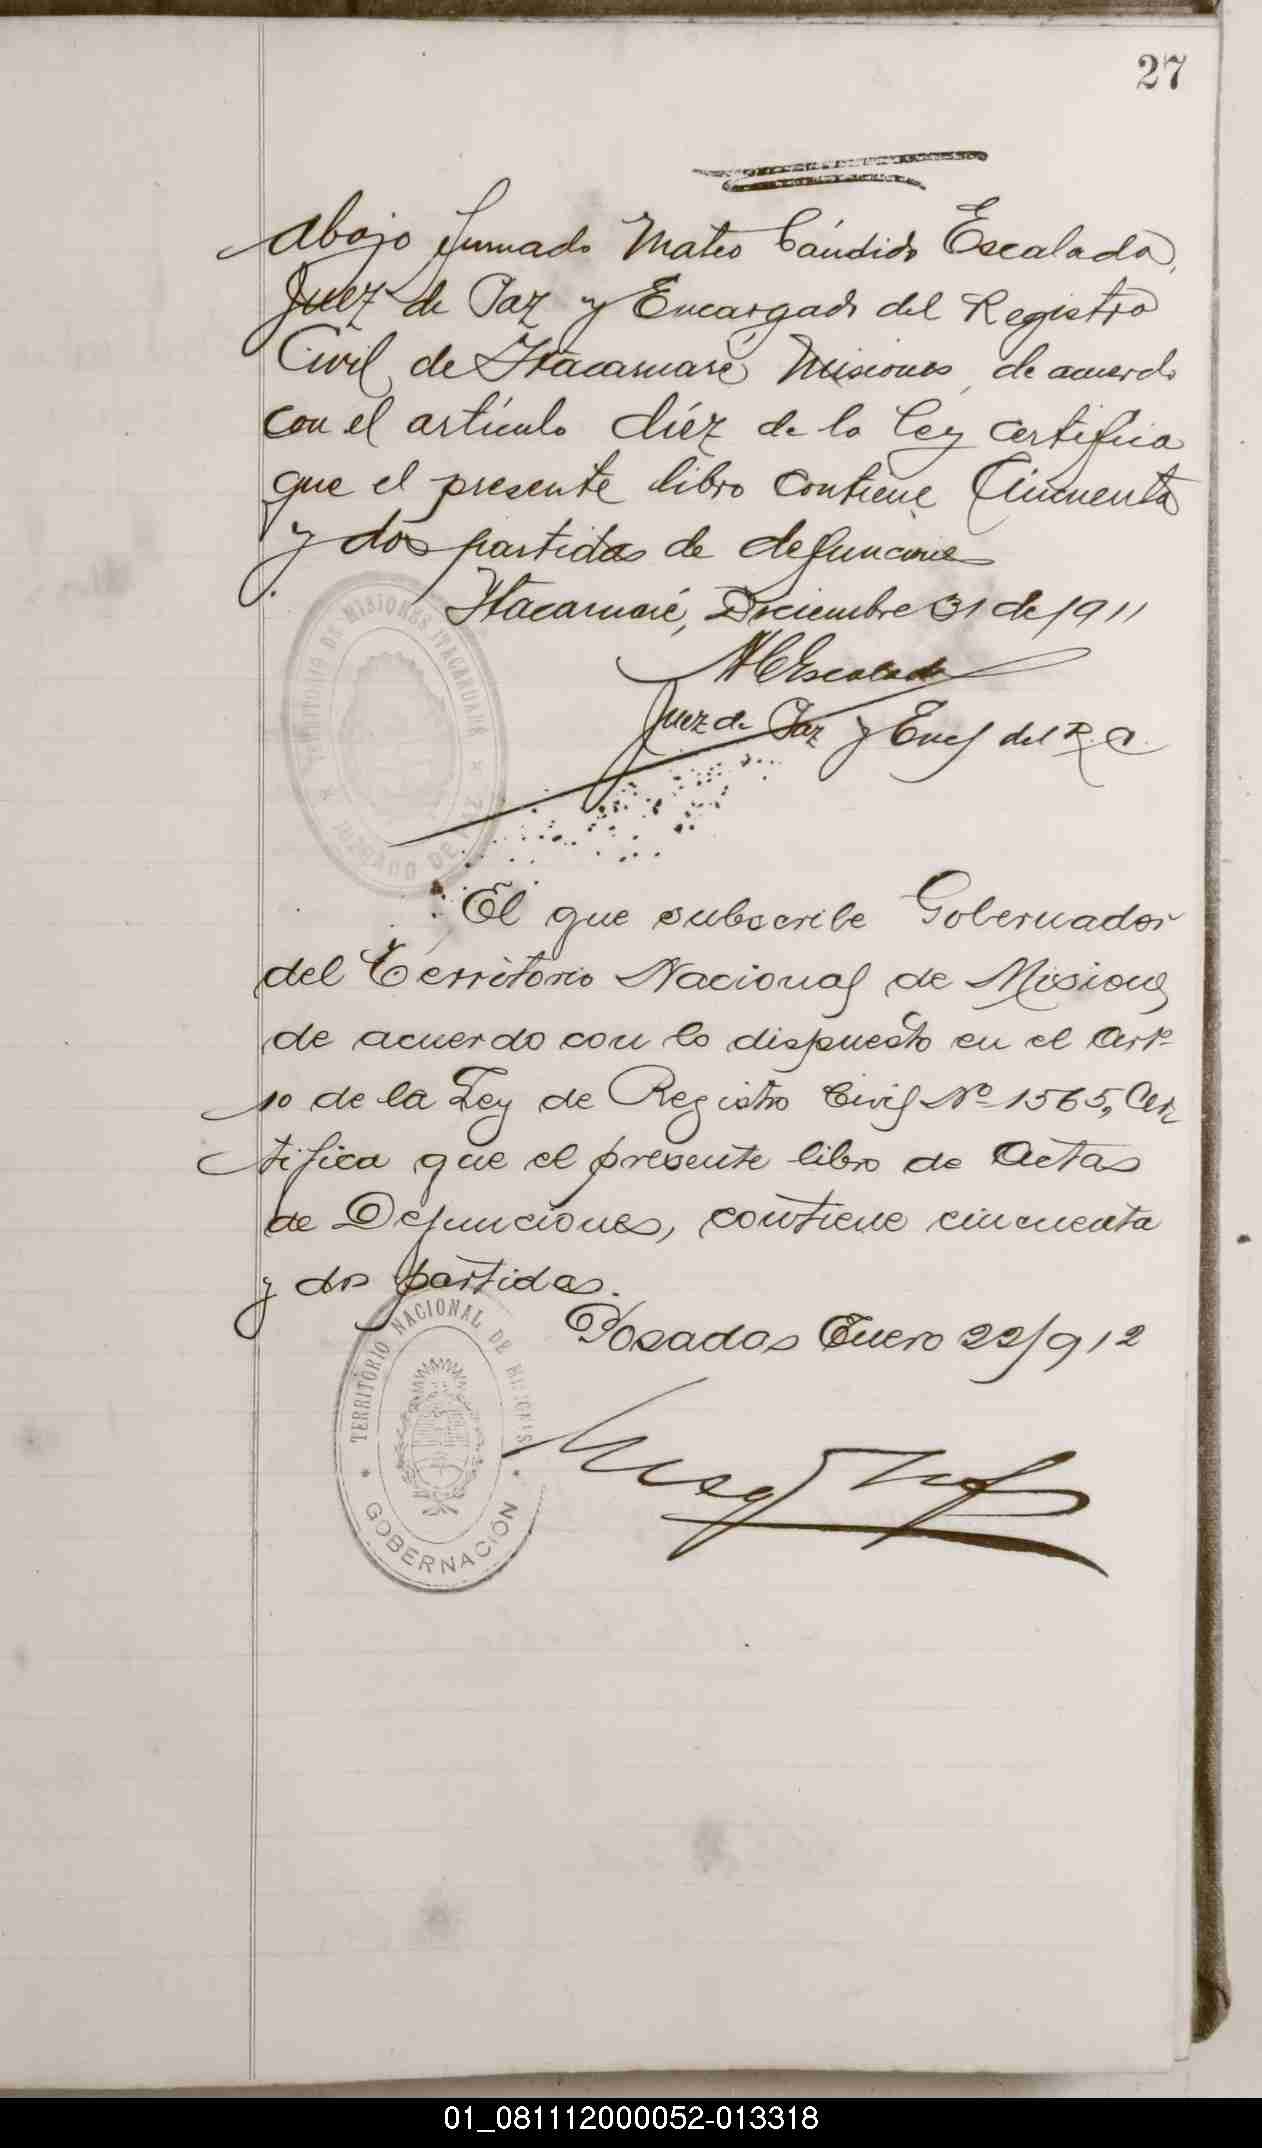 27
Abajo firmado Mateo Cándido Escalada,
Juez de Paz y Encargado del Registro
Civil de Itacaruaré, Misiones, de acuerdo
con el artículo diéz de la ley certifica
que el presente libro contiene Cincuenta
y dos partidas de defunciones
Itacaruaré, Diciembre 31 de 1911
MCEscalada
Juez de Paz y Enc del R. C.
TERRITORIO DE MISIONES ITACARUARE
JUZGADO DE PAZ
El que subscribe Gobernador
del Territorio Nacional de Misiones
de acuerdo con lo dispuesto en el Arto
10 de la Ley de Registro Civil No 1565, Cer
tifica que el presente libro de Actas
de Defunciones, contiene cincuenta
y dos partidas.
Posadas Enero 22/912
TERRITORIO NACIONAL DE MISIONES
GOBERNACIÓN
01_081112000052-013318